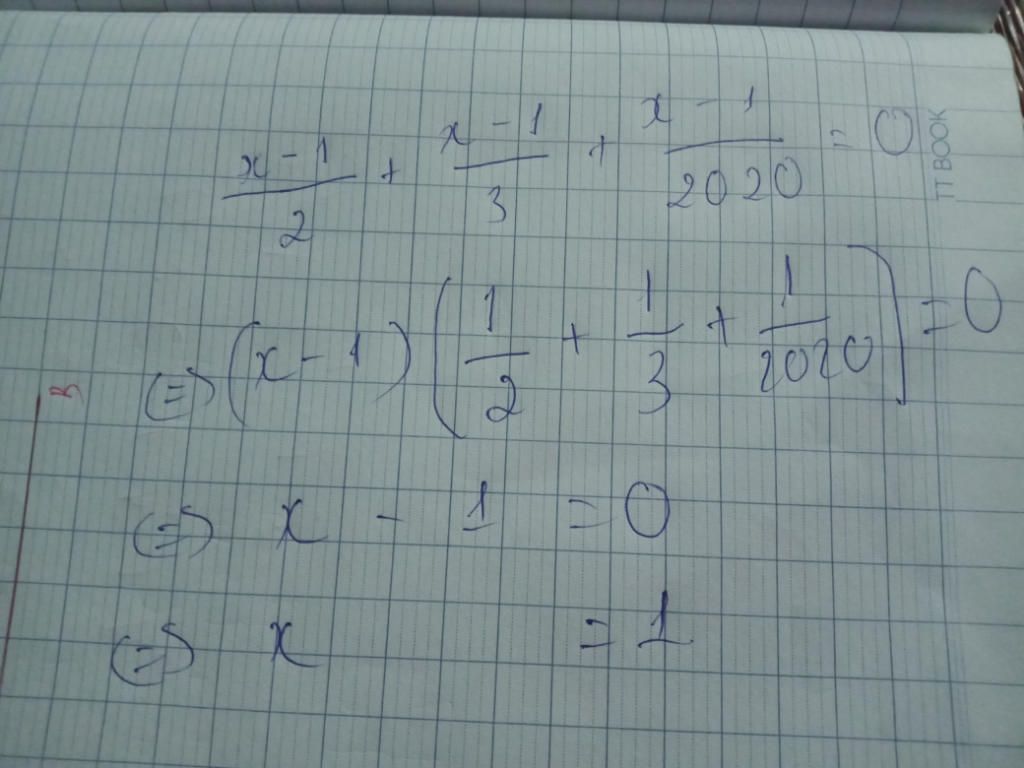 x - 1 / 2 + x - 1 / 3 + x - 1 / 2020 = 0
TT BOOK
(=) (x - 1) (1/2 + 1/3 + 1/2020) = 0
(=) x - 1 = 0
(=) x = 1